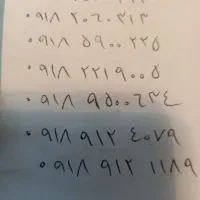 ۰۹۱۸ ۲۰۶۰ ۳۱۳
۰۹۱۸ ۵۹۰۰ ۲۲۵
۰۹۱۸ ۲۲۱ ۹۰۰۵
۰۹۱۸ ۹۵۰۰ ۶۳۴
۰۹۱۸ ۹۱۲ ۴۰۷۹
۰۹۱۸ ۹۱۲ ۱۱۸۹